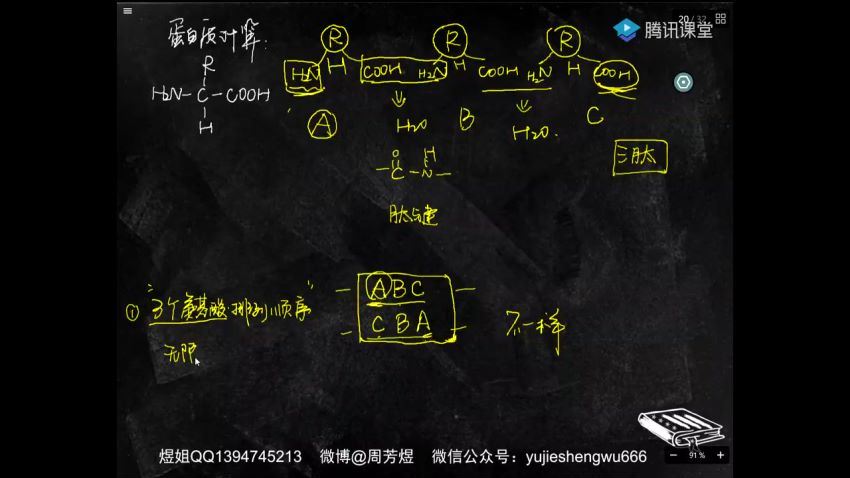 20 / 32
腾讯课堂
蛋白质计算:
R
H₂N-C-COOH
H
R R R
H₂N H COOH H₂N H COOH H₂N H COOH
A H₂O B H₂O. C
三肽
O H
-C-N-
肽键
① "3个氨基酸·排列顺序"
ABC
CBA
不一样
无限
煜姐QQ1394745213 微博@周芳煜 微信公众号：yujieshengwu666
91 %